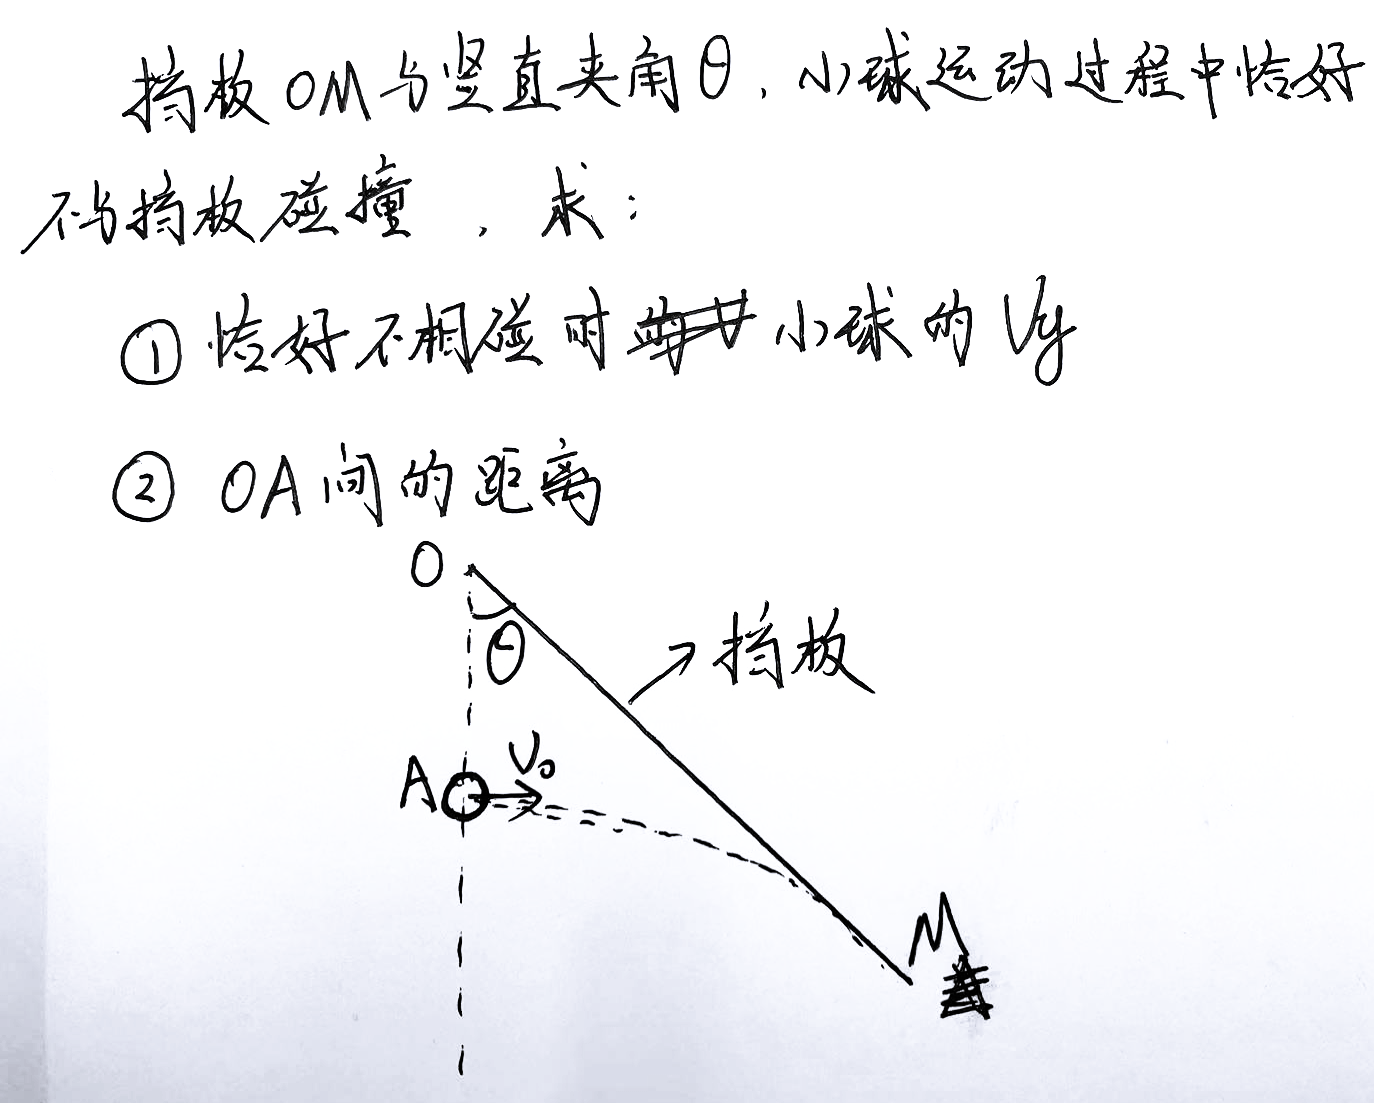 挡板OM与竖直夹角θ，小球运动过程中恰好
不与挡板碰撞，求：
① 恰好不相碰时小球的Vy
② OA间的距离
O
θ
挡板
A
V₀
M